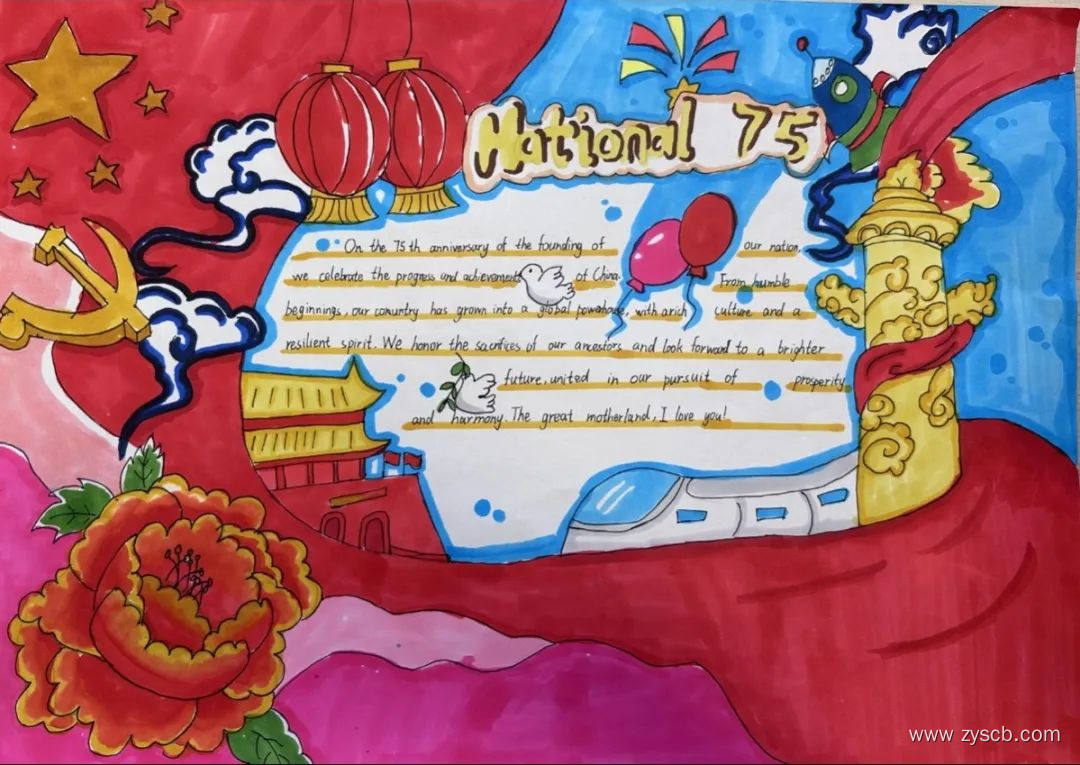 National 75
On the 75th anniversary of the founding of our nation,
we celebrate the progress and achievements of China. From humble
beginnings, our comuntry has grown into a global powerhouse, with a rich culture and a
resilient spirit. We honor the sacrifices of our ancestors and look forward to a brighter
future, united in our pursuit of prosperity
and harmony. The great motherland, I love you!
www.zyscb.com